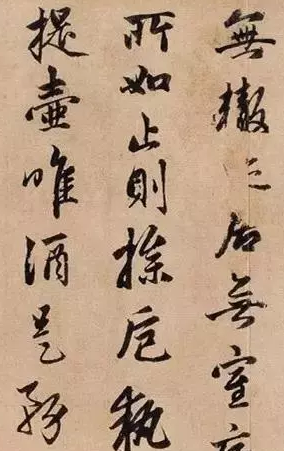 無轍迹居無室
所如止則操卮執
提壺唯酒是務